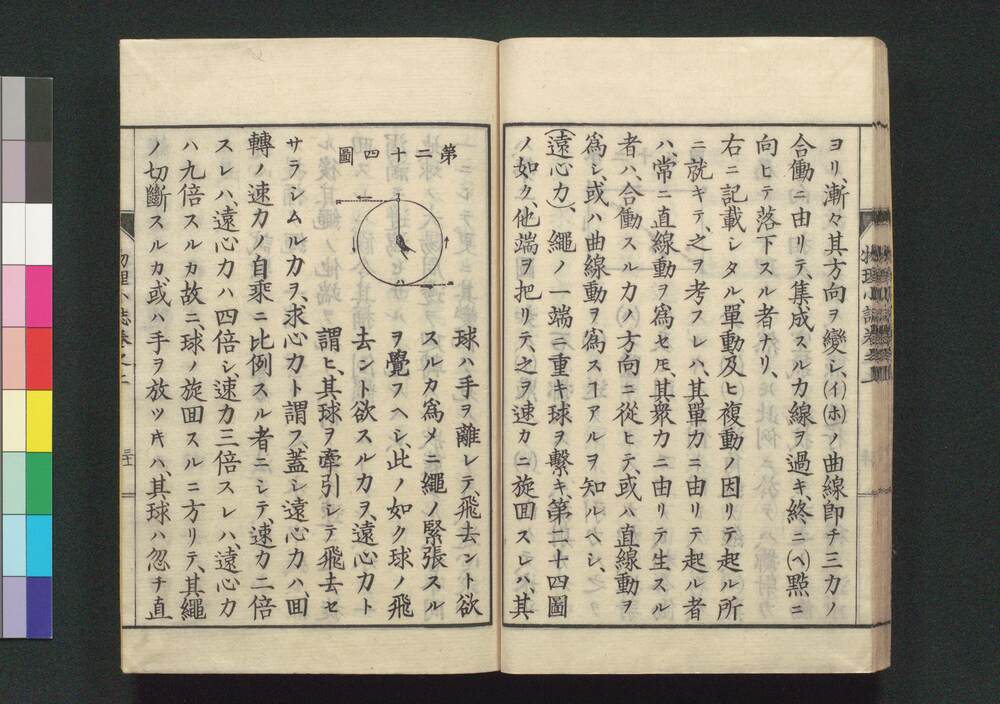 ヨリ、漸々其方向ヲ變シ、(イ)(ホ)ノ曲線卽チ三力ノ
合働ニ由リテ、集成スル力線ヲ過キ、終ニ(ヘ)點ニ
向ヒテ落下スル者ナリ、
右ニ記載シタル、單動及ヒ複動ノ因リテ起ル所
ニ就キテ、之ヲ考フレハ、其單力ニ由リテ起ル者
ハ、常ニ直線動ヲ爲セ𪜈、其衆力ニ由リテ生スル
者ハ、合働スル力ノ方向ニ從ヒテ、或ハ直線動ヲ
爲シ、或ハ曲線動ヲ爲スヿアルヲ知ルヘシ、
(遠心力)、繩ノ一端ニ重キ球ヲ繫キ、第二十四圖
ノ如ク、他端ヲ把リテ、之ヲ速カニ旋回スレハ、其
物理小誌卷之二
第二十四圖
球ハ手ヲ離レテ、飛去ント欲
スルカ爲メニ繩ノ緊張スル
ヲ覺フヘシ、此ノ如ク球ノ飛
去ント欲スル力ヲ、遠心力ト
謂ヒ、其球ヲ牽引シテ飛去セ
サラシムル力ヲ、求心力ト謂フ、蓋シ遠心力ハ、回
轉ノ速力ノ自乘ニ比例スル者ニシテ、速力二倍
スレハ、遠心力ハ四倍シ、速力三倍スレハ、遠心力
ハ九倍スルカ故ニ、球ノ旋回スルニ方リテ、其繩
ノ切斷スルカ、或ハ手ヲ放ツ片ハ、其球ハ忽チ直
物理小誌卷之二